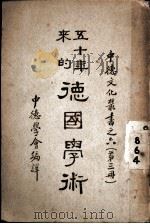 中德文化叢書之六（第三册）
五十年來的德國學術
中德學會編譯
864